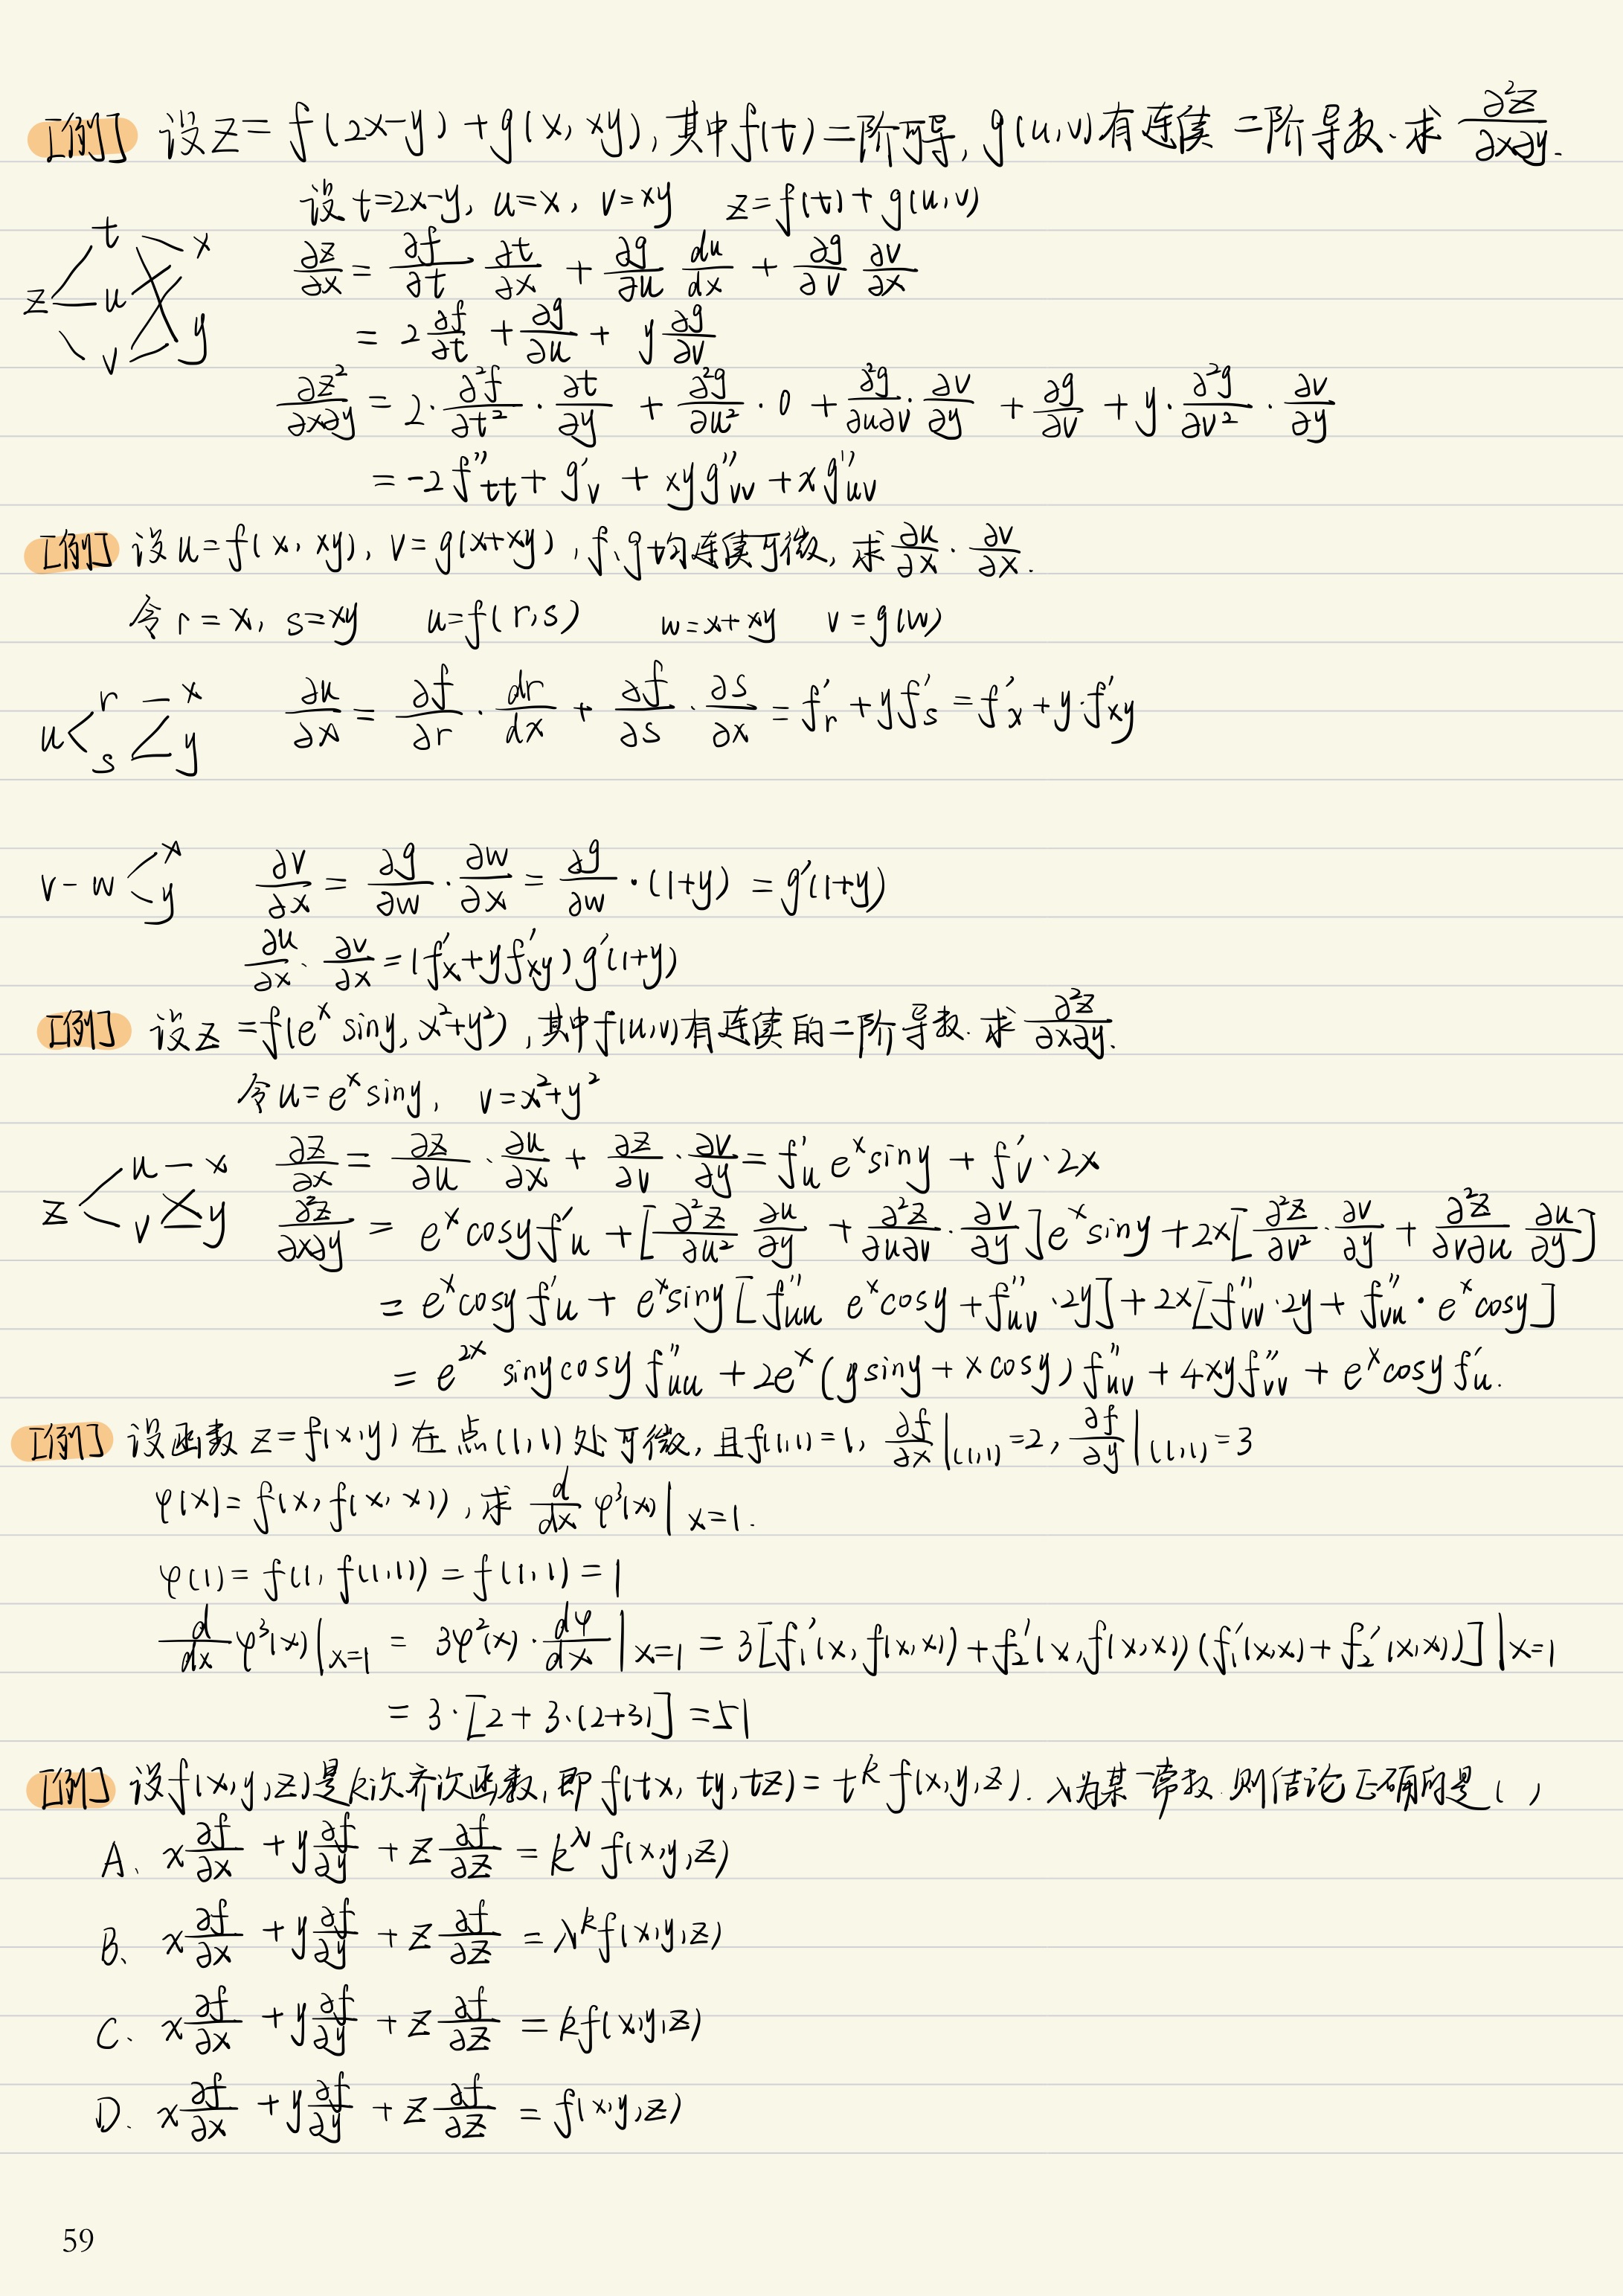 [例] 设 z = f(2x-y) + g(x, xy), 其中f(t)二阶可导, g(u,v)有连续 二阶导数. 求 ∂²z/∂x∂y.
设 t=2x-y, u=x, v=xy  z=f(t)+g(u,v)
z t u v x y
∂z/∂x = ∂f/∂t ∂t/∂x + ∂g/∂u du/dx + ∂g/∂v ∂v/∂x
= 2 ∂f/∂t + ∂g/∂u + y ∂g/∂v
∂z²/∂x∂y = 2·∂²f/∂t² · ∂t/∂y + ∂²g/∂u² · 0 + ∂²g/∂u∂v · ∂v/∂y + ∂g/∂v + y·∂²g/∂v² · ∂v/∂y
= -2f''tt + g'v + xyg''vv + xg''uv
[例] 设 u=f(x, xy), v=g(x+xy), f、g均连续可微, 求 ∂u/∂x · ∂v/∂x.
令 r=x, s=xy  u=f(r,s)  w=x+xy  v=g(w)
u r s x y
∂u/∂x = ∂f/∂r · dr/dx + ∂f/∂s · ∂s/∂x = f'r + yf's = f'x + y·f'xy
v - w x y
∂v/∂x = ∂g/∂w · ∂w/∂x = ∂g/∂w · (1+y) = g'(1+y)
∂u/∂x · ∂v/∂x = (f'x + yf'xy) g'(1+y)
[例] 设z = f(eˣ siny, x²+y²), 其中f(u,v)有连续的二阶导数. 求 ∂²z/∂x∂y.
令 u=eˣ siny, v=x²+y²
z u v x y
∂z/∂x = ∂z/∂u · ∂u/∂x + ∂z/∂v · ∂v/∂y = f'u eˣ siny + f'v · 2x
∂²z/∂x∂y = eˣ cosy f'u + [∂²z/∂u² ∂u/∂y + ∂²z/∂u∂v · ∂v/∂y] eˣ siny + 2x[∂²z/∂v² · ∂v/∂y + ∂²z/∂v∂u ∂u/∂y]
= eˣ cosy f'u + eˣ siny [f''uu eˣ cosy + f''uv · 2y] + 2x[f''vv · 2y + f''vu · eˣ cosy]
= e²ˣ siny cosy f''uu + 2eˣ (ysiny + xcosy) f''uv + 4xyf''vv + eˣ cosy f'u.
[例] 设函数 z=f(x,y) 在点(1,1)处可微, 且f(1,1)=1, ∂f/∂x|(1,1)=2, ∂f/∂y|(1,1)=3
φ(x)=f(x,f(x,x)), 求 d/dx φ³(x)| x=1.
φ(1)=f(1,f(1,1))=f(1,1)=1
d/dx φ³(x)|x=1 = 3φ²(x)·dφ/dx|x=1 = 3[f₁'(x,f(x,x))+f₂'(x,f(x,x))(f₁'(x,x)+f₂'(x,x))]|x=1
= 3·[2+3·(2+3)] = 51
[例] 设f(x,y,z)是k次齐次函数, 即 f(tx, ty, tz)=tᵏ f(x,y,z). λ为某一常数. 则结论正确的是( )
A、x ∂f/∂x + y ∂f/∂y + z ∂f/∂z = k^λ f(x,y,z)
B、x ∂f/∂x + y ∂f/∂y + z ∂f/∂z = λᵏ f(x,y,z)
C、x ∂f/∂x + y ∂f/∂y + z ∂f/∂z = kf(x,y,z)
D、x ∂f/∂x + y ∂f/∂y + z ∂f/∂z = f(x,y,z)
59